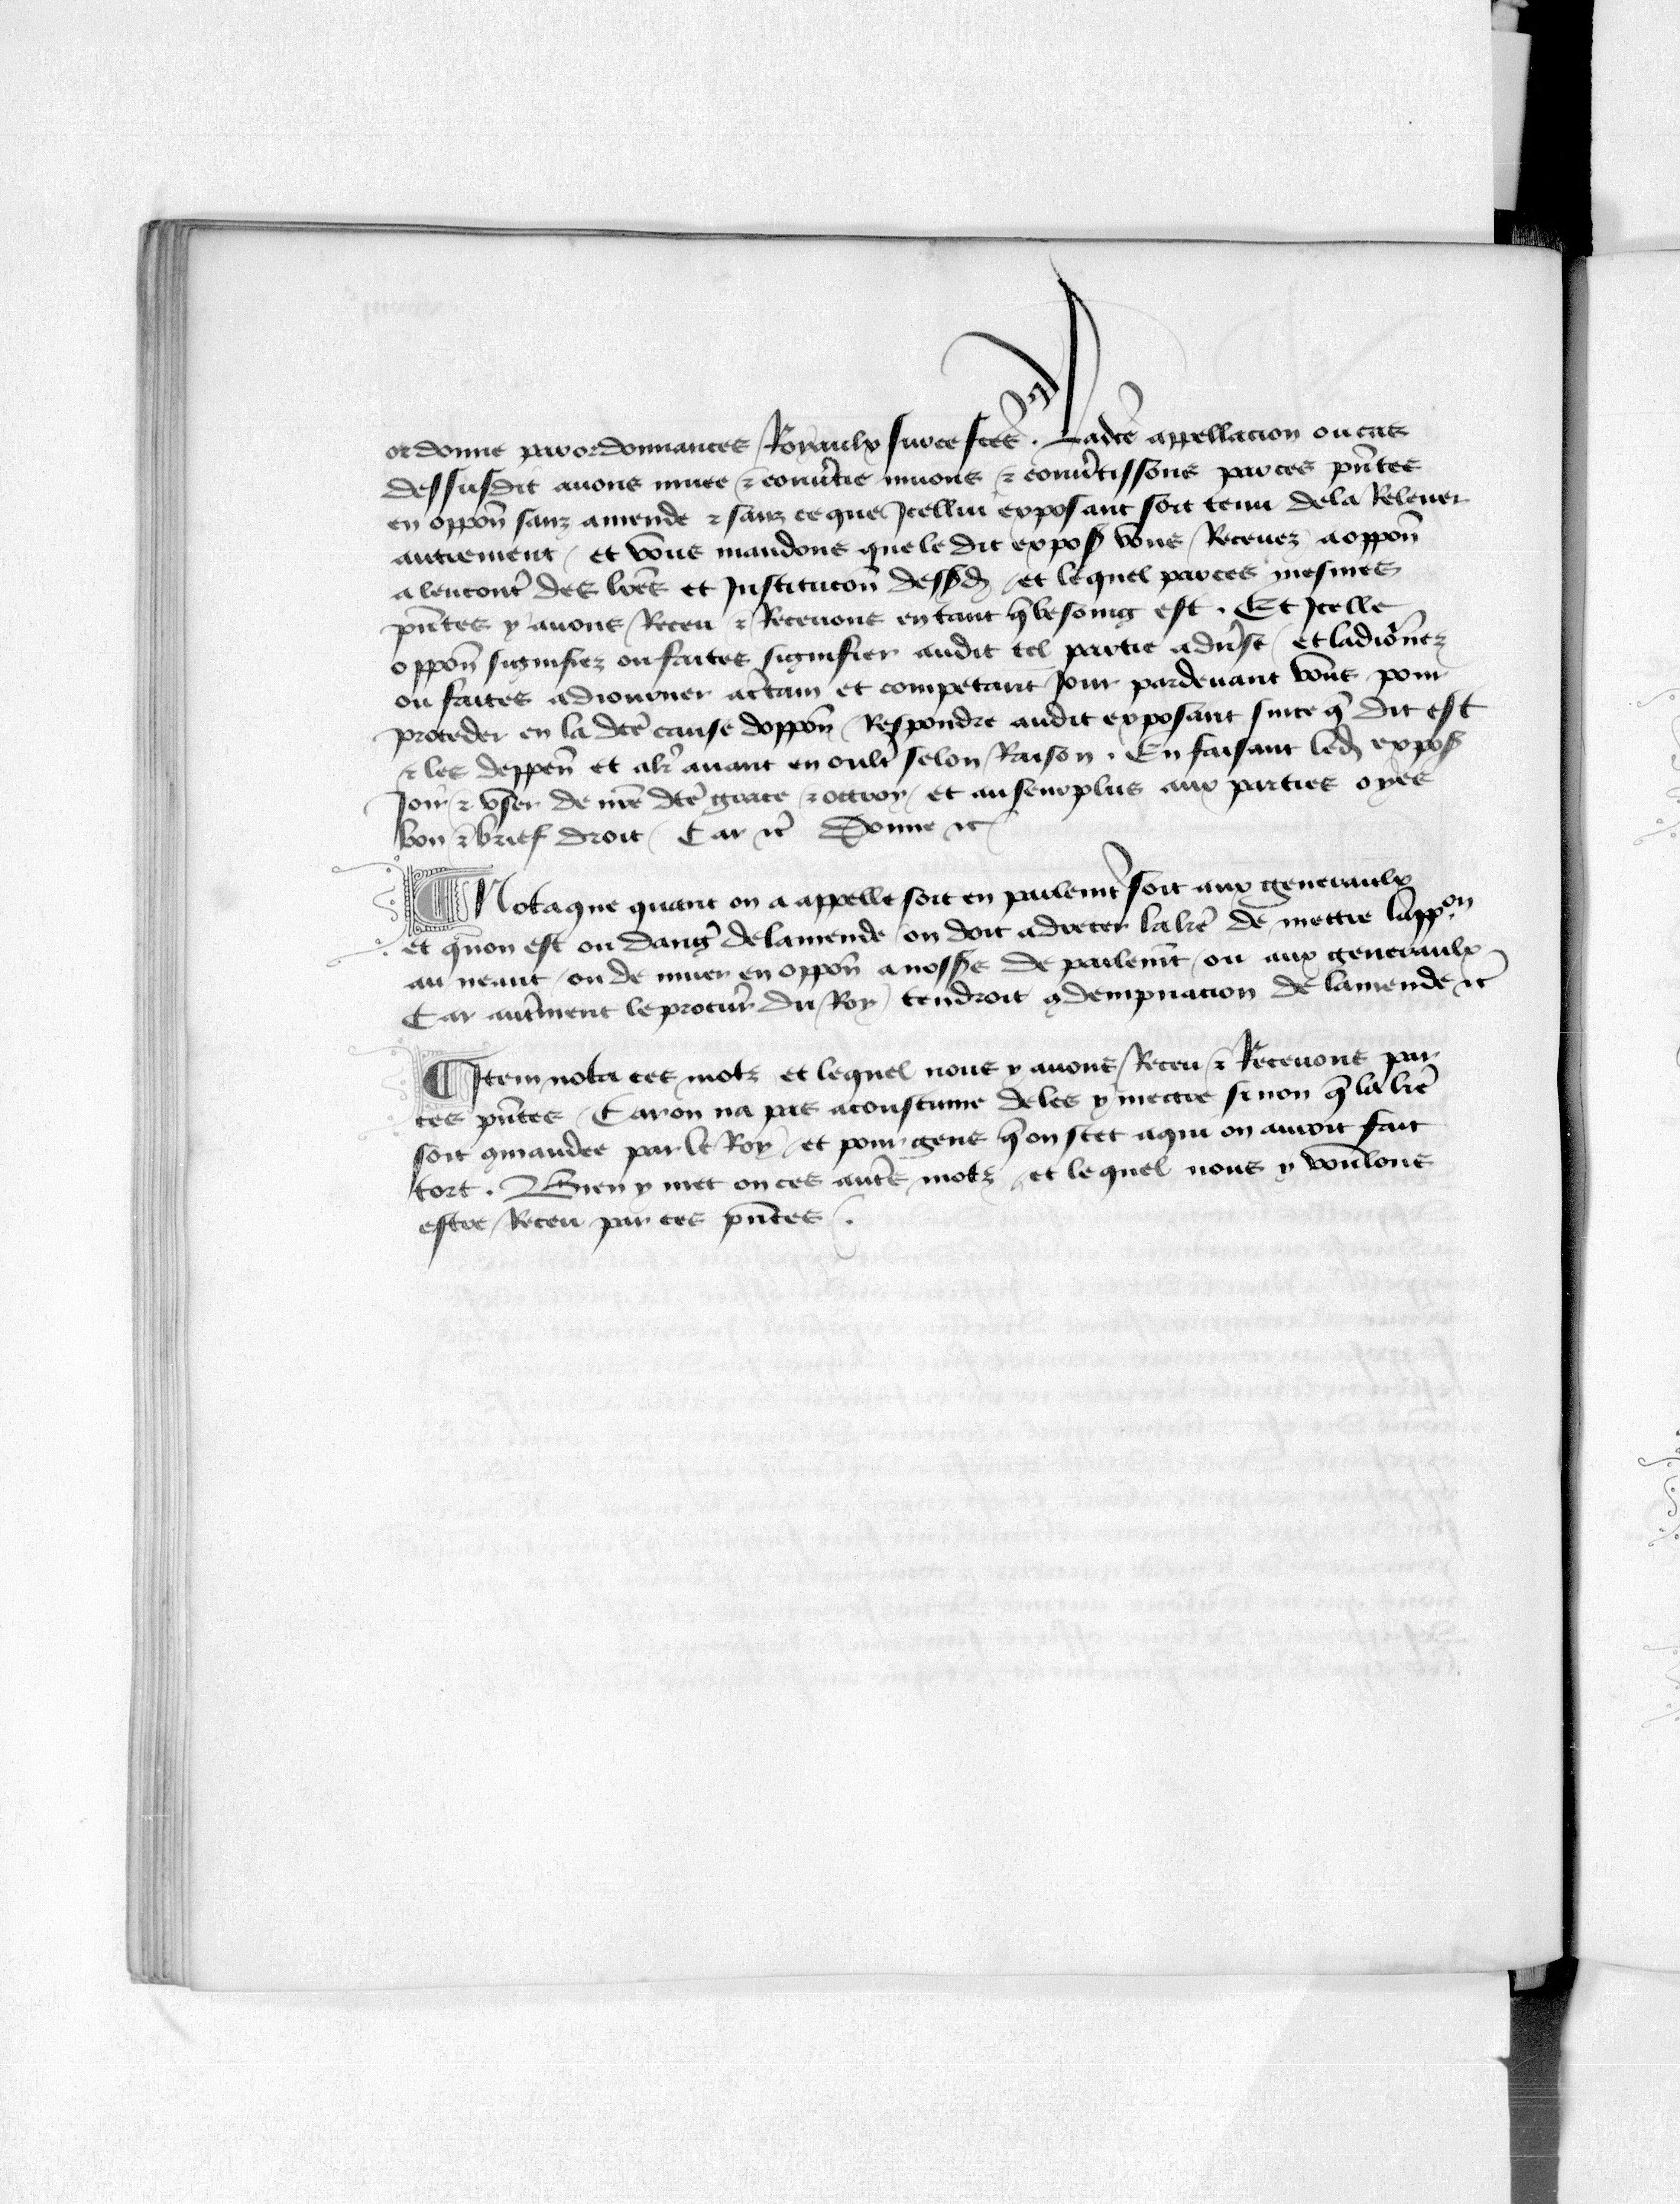 ordonne par ordonnances Royaulx sur ce fc̃es. Ladc̃e appellacion ou cas
dessusdit avons muee ⁊ conv̾tie muons ⁊ conv̾tissons par ces pñtes
en oppõn sanz amende ⁊ sanz ce que Icellui exposant soit tenu de la Relever
autrement / et vous mandons que le dit expos̃ vous Recevez a oppõn
a lencont̾ des lr̃es et Institucõn dess̃d̃ / et lequel par ces mesmes
pñtes y avons Receu ⁊ Recevons en tant q̃ besoing est. Et Icelle
oppõn signifiez ou faites signifier audit tel partie adv̾se / et ladio̾nez
ou faites adiourner a c̾tain et competant Jour pardevant vous pour
proceder en la dc̃e cause doppõn Respondre audit exposant sur ce q̃ dit est
⁊ les deppeñ et al̾r avant en oult̾ selon Raison. En faisant led̃ expos̃
Joir ⁊ vser de nr̃e dc̃e grace ⁊ octroy / et au seurplus aux parties oyes
bon ⁊ brief droit / Car ⁊c̃ Donne ⁊c̃
¶ Nota que quant on a appelle soit en parlem̃t soit aux generaulx
et quon est ou dang̾ de lamende / on doit adrecer la lr̃e de mettre lappõn
au neant / ou de muer en oppõn a noss̃rs de parlem̃t / ou aux generaulx
Car aut̾ment le procur̾ du Roy / tendroit a ꝯdempnacion de lamende ⁊c̃
¶ Item nota ces motz et lequel nous y avons Receu ⁊ Recevons par
ces pñtes / Car on na pas acoustume de les y mettre si non q̃ la lr̃e
soit ꝯmandee par le Roy / et pour gens q̃ on scet a qui on auroit fait
tort. Bien y met on ces aut̾s motz / et lequel nous y voulons
estre Receu par ces pñtes.